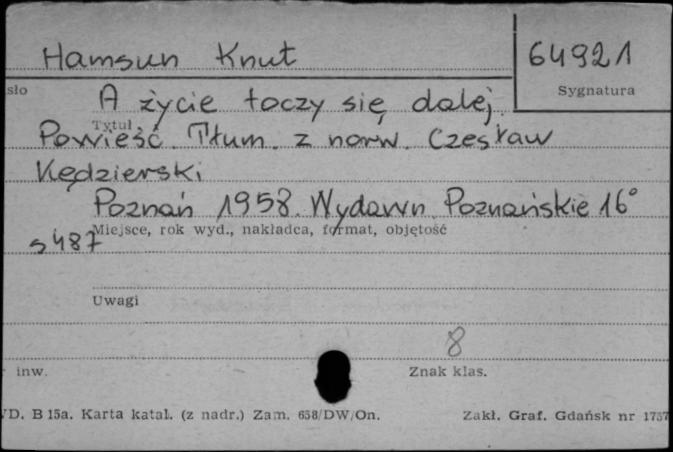 Hamsun Knut
64921
Sygnatura
sło
A życie toczy się dalej.
Tytuł
Powieść. Tłum. z norw. Czesław
Kędzierski
Poznań 1958. Wydawn. Poznańskie 16°
Miejsce, rok wyd., nakładca, format, objętość
s 487
Uwagi
8
inw.
Znak klas.
D. B 15a. Karta katal. (z nadr.) Zam. 658/DW/On.
Zakł. Graf. Gdańsk nr 1757